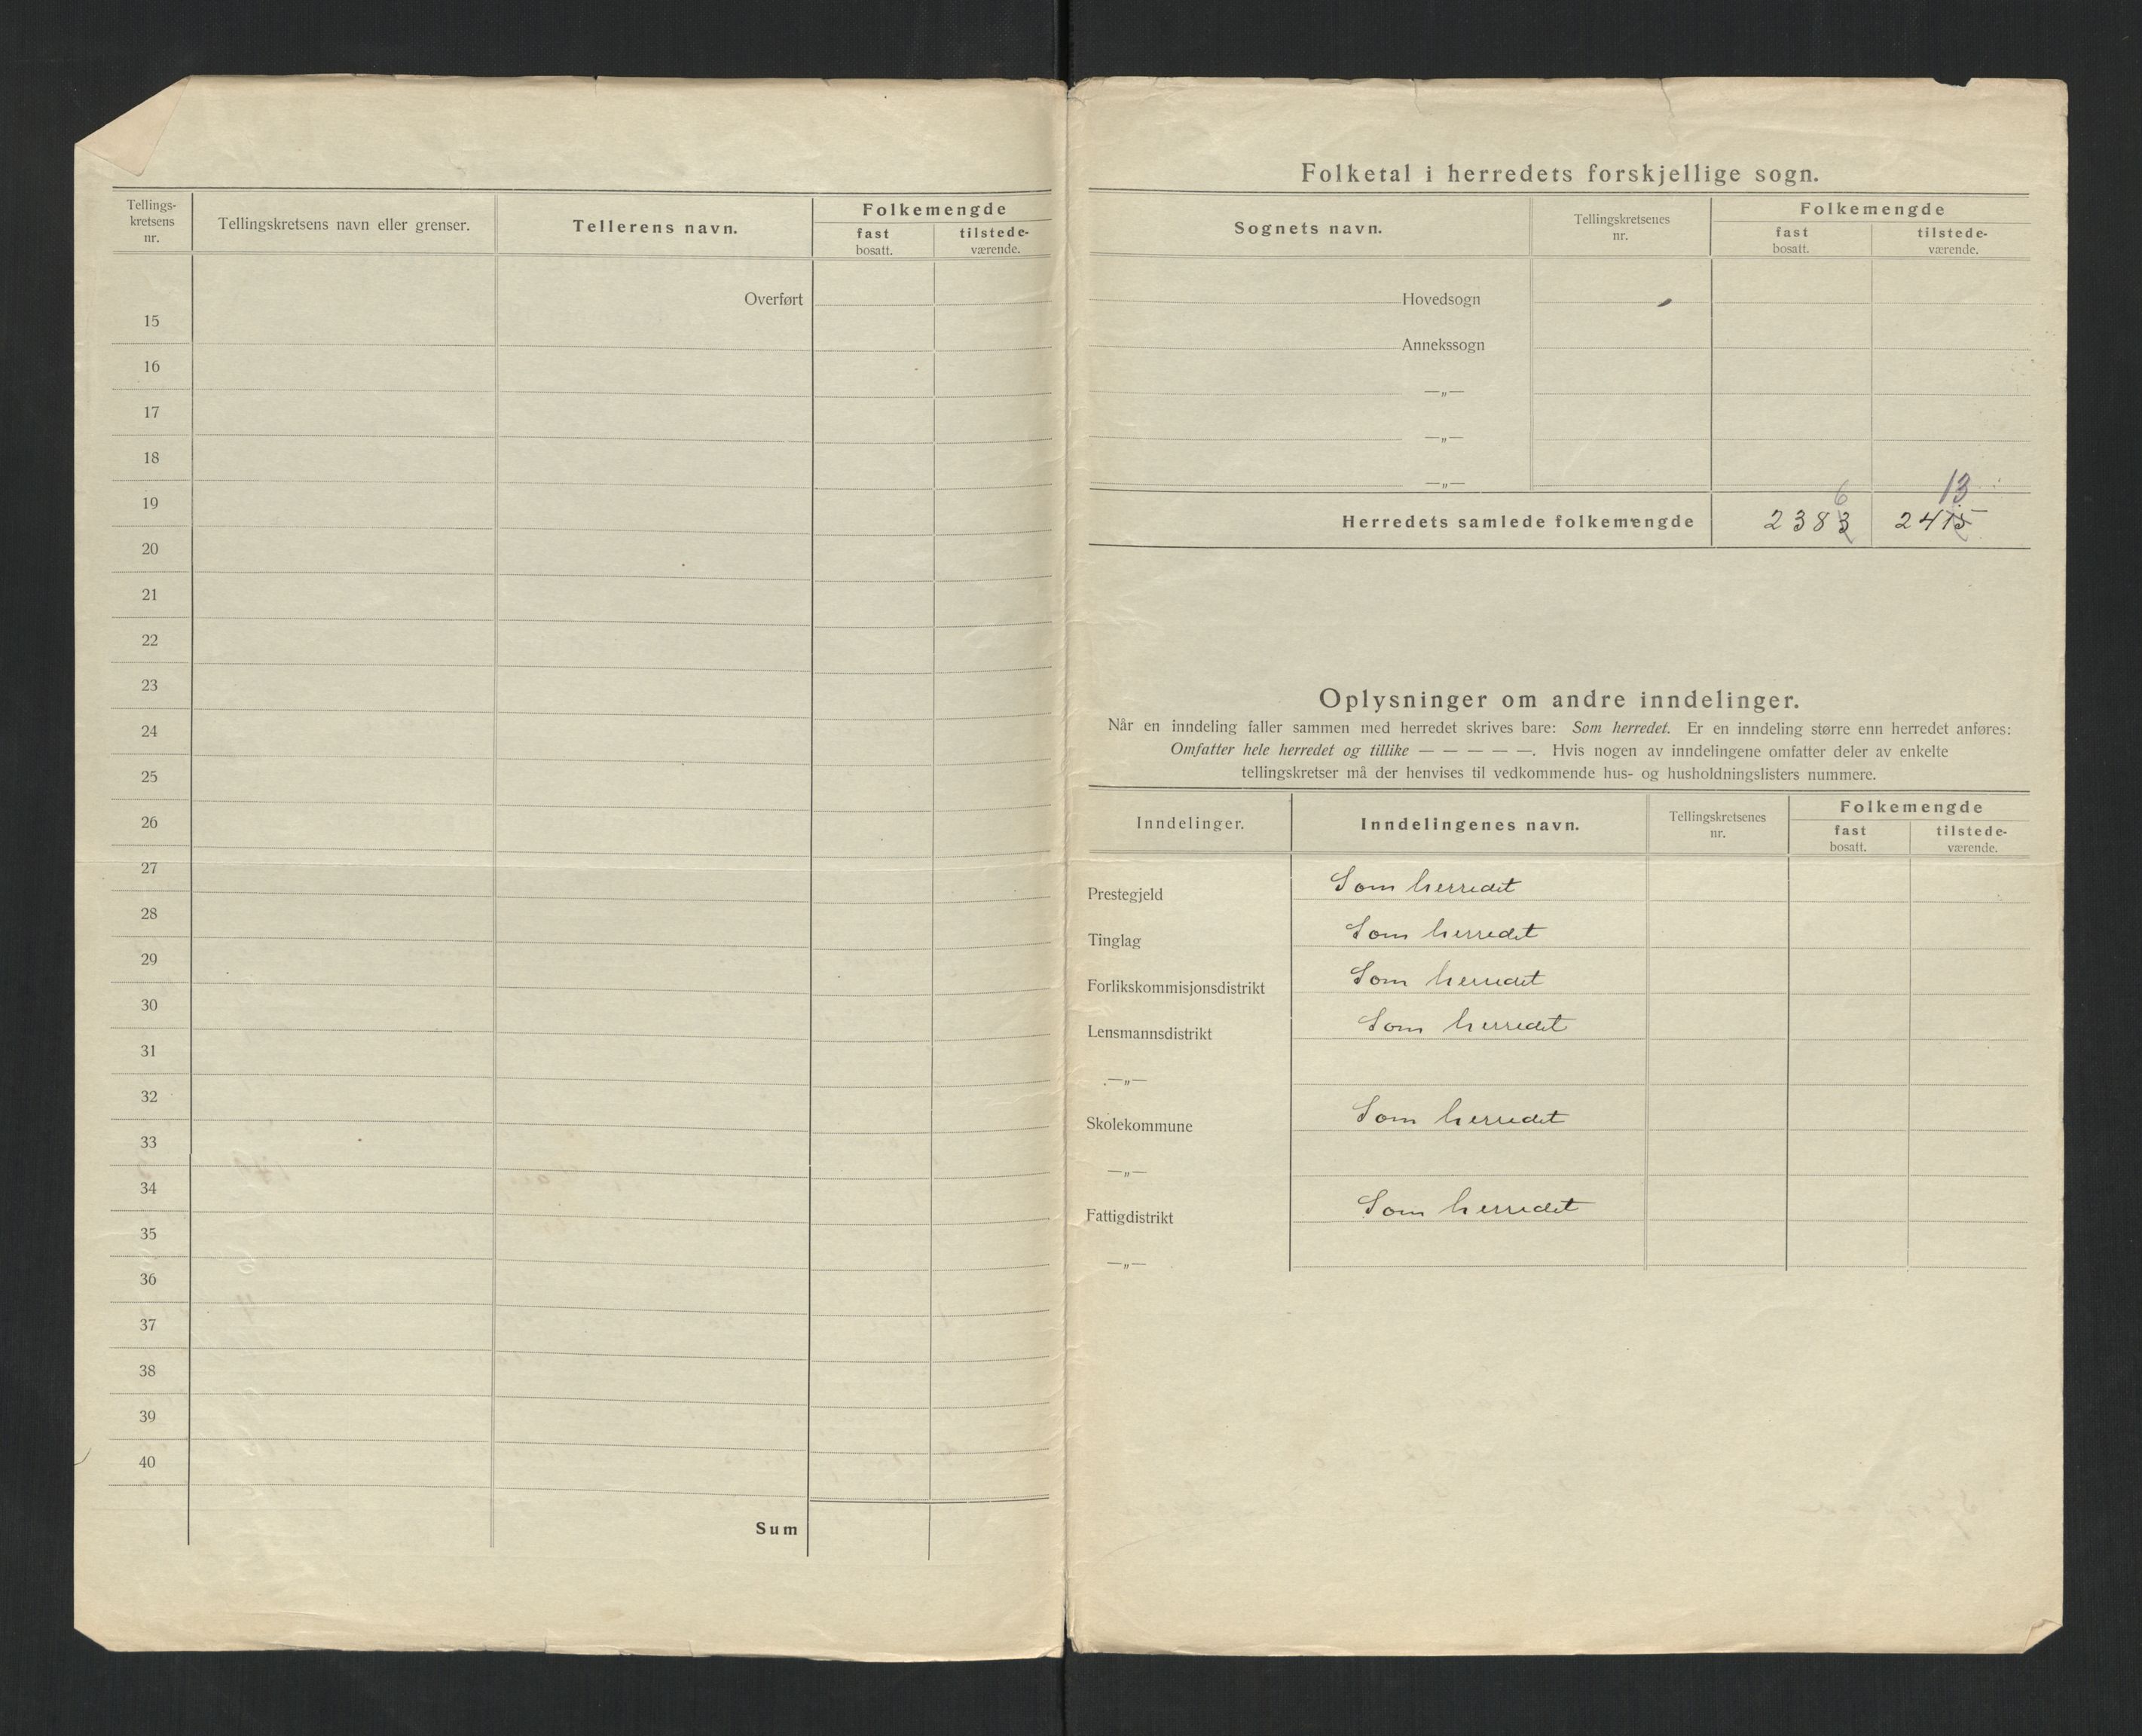 Tellings-
kretsens
nr.
Tellingskretsens navn eller grenser.
Tellerens navn.
Folkemengde
fast
bosatt.
tilstede-
værende.
Overført
15
16
17
18
19
20
21
22
23
24
25
26
27
28
29
30
31
32
33
34
35
36
37
38
39
40
Sum
Folketal i herredets forskjellige sogn.
Sognets navn.
Tellingskretsenes
nr.
Folkemengde
fast
bosatt.
tilstede-
værende.
Hovedsogn
Annekssogn
—„—
—„—
—„—
6 13
Herredets samlede folkemengde 2383 2415
Oplysninger om andre inndelinger.
Når en inndeling faller sammen med herredet skrives bare: Som herredet. Er en inndeling større enn herredet anføres:
Omfatter hele herredet og tillike — — — — —. Hvis nogen av inndelingene omfatter deler av enkelte
tellingskretser må der henvises til vedkommende hus- og husholdningslisters nummere.
Inndelinger.
Inndelingenes navn.
Tellingskretsenes
nr.
Folkemengde
fast
bosatt.
tilstede-
værende.
Prestegjeld Som herredet
Tinglag Som herredet
Forlikskommisjonsdistrikt Som herredet
Lensmannsdistrikt Som herredet
—„—
Skolekommune Som herredet
—„—
Fattigdistrikt Som herredet
—„—